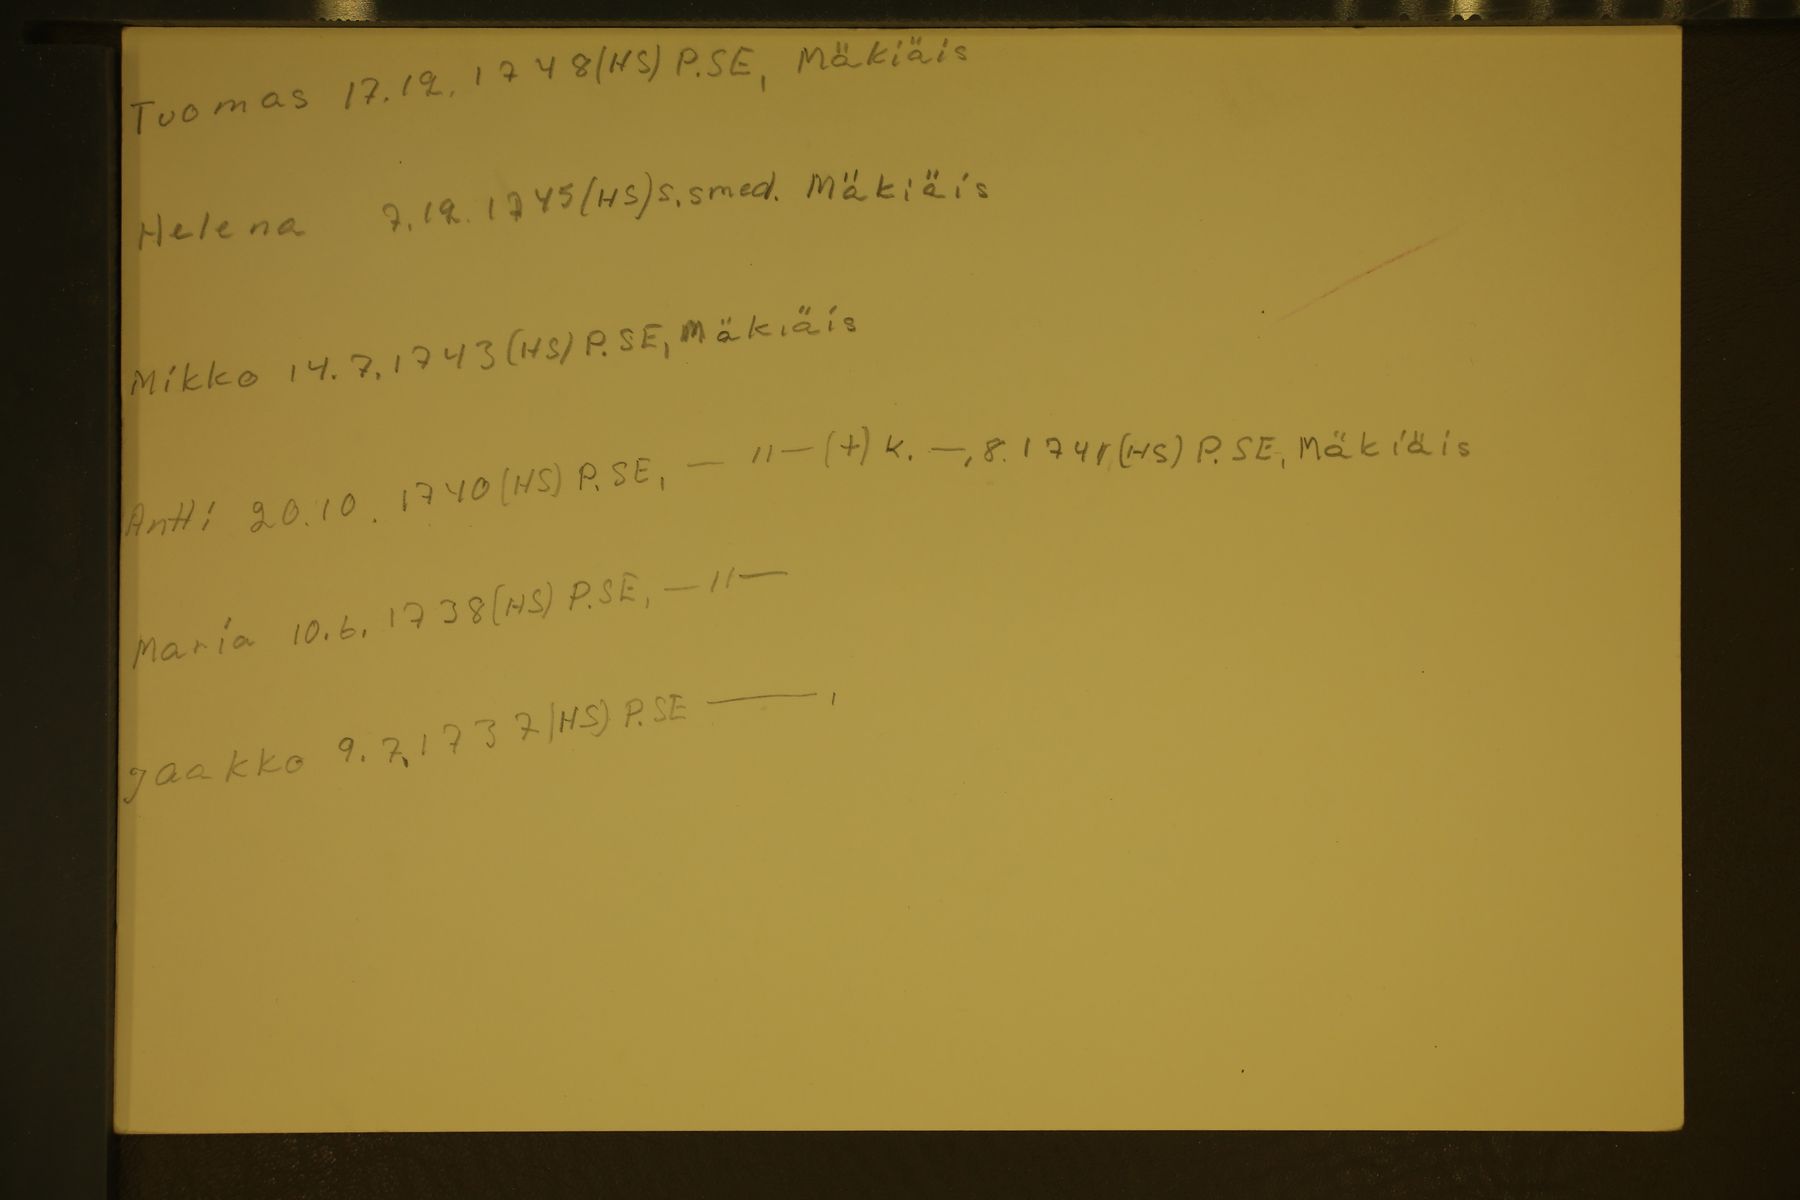 Tuomas 17.12.1748(HS) P.SE, Mäkiäis
Helena 7.12.1745(HS) s.smed. Mäkiäis
Mikko 14.7.1743(HS) P.SE, Mäkiäis
Antti 20.10.1740(HS) P.SE, —"— (+) k. —.8.1741(HS) P.SE, Mäkiäis
Maria 10.6.1738(HS) P.SE, —"—
Jaakko 9.7.1737(HS) P.SE ——,